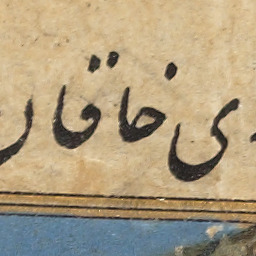 ی خاقان